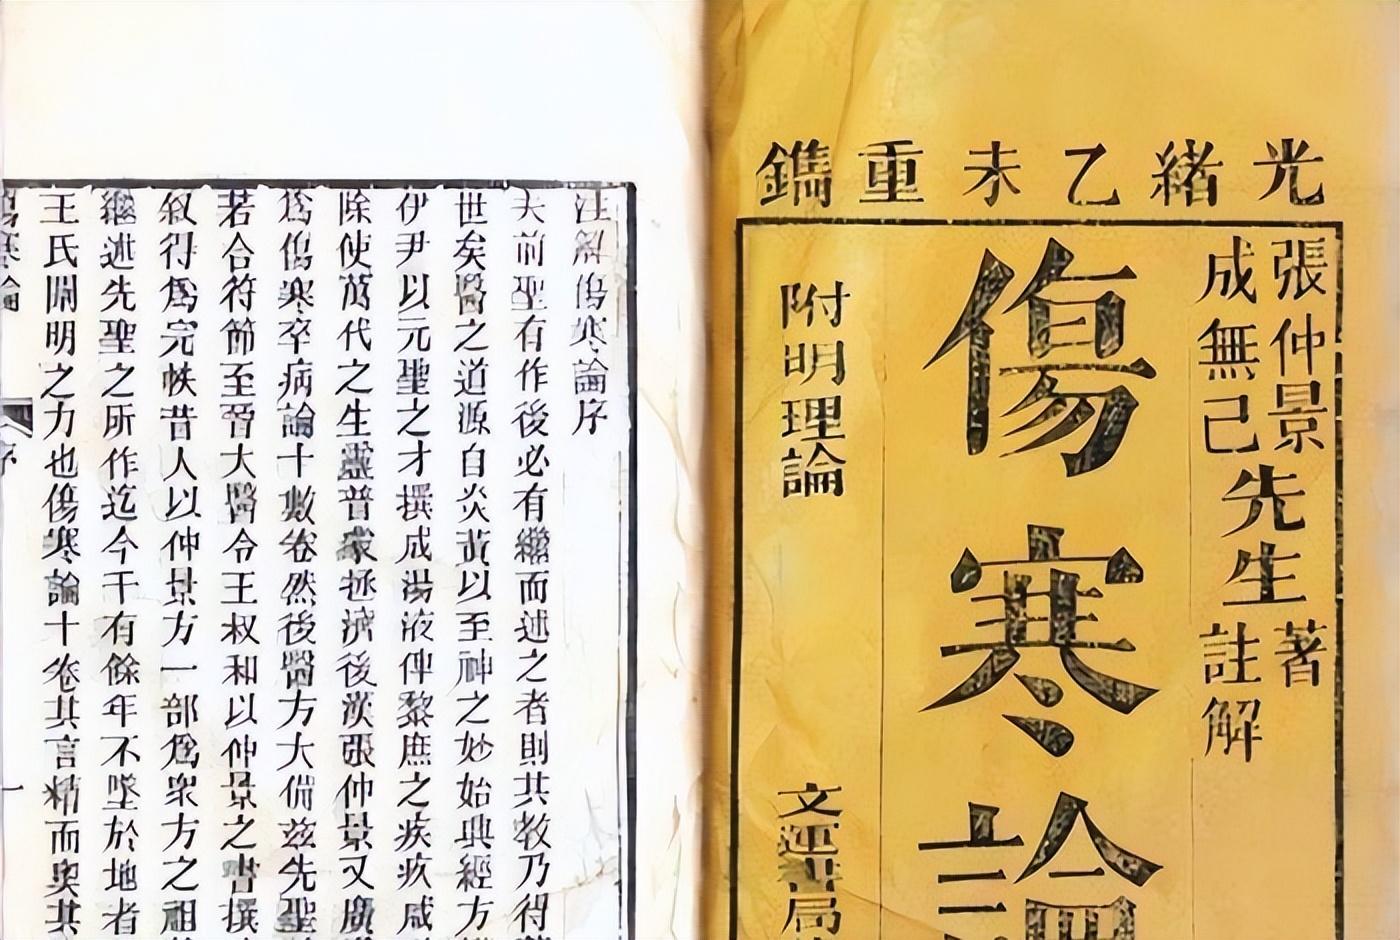 光緒乙未重鐫
張仲景
成無己
先生
著
註解
傷寒論
附明理論
文運書局
注解傷寒論序
夫前聖有作後必有繼而述之者則其教乃得
世矣醫之道源自炎黃以至神之妙始興經方
伊尹以元聖之才撰成湯液俾黎庶之疾疚咸
除使萬代之生靈普蒙拯濟後漢張仲景又廣
爲傷寒卒病論十數卷然後醫方大備茲先聖
若合符節至晉大醫令王叔和以仲景之書撰
敘得爲完帙昔人以仲景方一部爲衆方之祖
繼述先聖之所作迄今千有餘年不墜於地者
王氏闡明之力也傷寒論十卷其言精而奧其
傷寒論
序
一